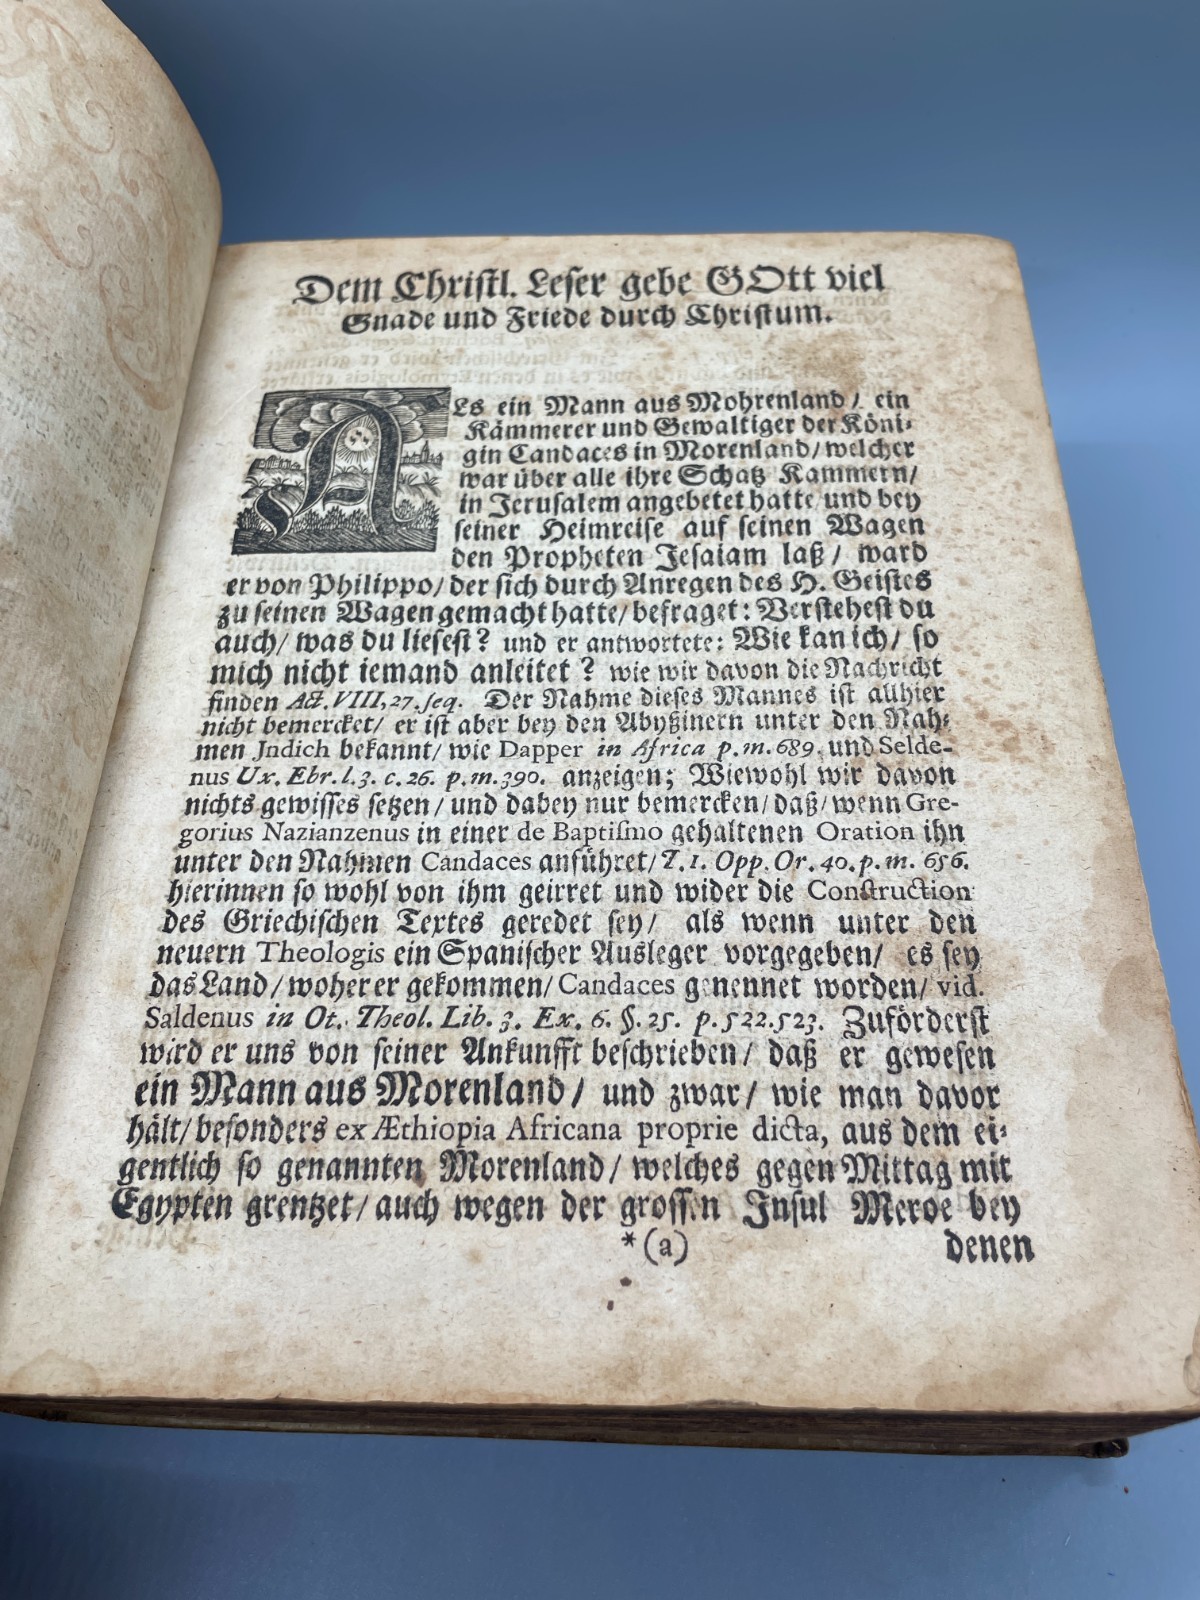 Dem Christl. Leser gebe GOtt viel
Gnade und Friede durch Christum.
Als ein Mann aus Mohrenland/ ein
Kämmerer und Gewaltiger der Köni-
gin Candaces in Morenland/ welcher
war über alle ihre Schatz Kammern/
in Jerusalem angebetet hatte und bey
seiner Heimreise auf seinen Wagen
den Propheten Jesaiam laß/ ward
er von Philippo/ der sich durch Anregen des H. Geistes
zu seinen Wagen gemacht hatte/ befraget: Verstehest du
auch/ was du liesest? und er antwortete: Wie kan ich/ so
mich nicht iemand anleitet? wie wir davon die Nachricht
finden Act. VIII, 27. seq. Der Nahme dieses Mannes ist allhier
nicht bemercket/ er ist aber bey den Abyßinern unter den Nah-
men Jndich bekannt/ wie Dapper in Africa p. m. 689. und Selde-
nus Ux. Ebr. l. 3. c. 26. p. m. 390. anzeigen; Wiewohl wir davon
nichts gewisses setzen/ und dabey nur bemercken/ daß/ wenn Gre-
gorius Nazianzenus in einer de Baptismo gehaltenen Oration ihn
unter den Nahmen Candaces anführet/ T. 1. Opp. Or. 40. p. m. 656.
hierinnen so wohl von ihm geirret und wider die Construction
des Griechischen Textes geredet sey/ als wenn unter den
neuern Theologis ein Spanischer Ausleger vorgegeben/ es sey
das Land/ woher er gekommen/ Candaces genennet worden/ vid.
Saldenus in Ot. Theol. Lib. 3. Ex. 6. §. 25. p. 522. 523. Zuförderst
wird er uns von seiner Ankunfft beschrieben/ daß er gewesen
ein Mann aus Morenland/ und zwar/ wie man davor
hält/ besonders ex Æthiopia Africana proprie dicta, aus dem ei-
gentlich so genannten Morenland/ welches gegen Mittag mit
Egypten grentzet/ auch wegen der grossen Insul Meroe bey
*(a)
denen